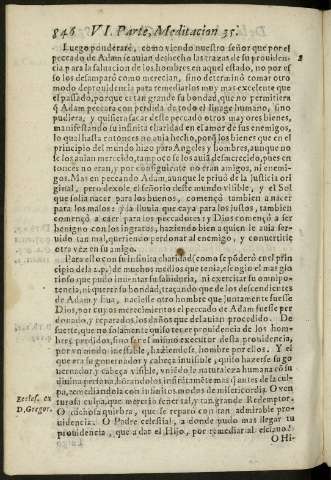 846 VI. Parte, Meditacion 35.
Luego ponderaré, como viendo nuestro señor que por el
peccado de Adam se auian deshecho las trazas de su prouiden-
cia para la saluacion de los hombres en aquel estado, no por es
so los desamparó como merecian, sino determinó tomar otro
modo de prouidencia para remediarlos muy mas excelente que
el passado, porque es tan grande su bondad, que no permitiera
q̃ Adam peccara con perdida de todo el linage humano, sino
pudiera, y quisiera sacar deste peccado otros mayores bienes,
manifestando su infinita charidad en el amor de sus enemigos,
lo qual hasta entonces no auia hecho, porq̃ los bienes que en el
principio del mundo hizo para Angeles y hombres, aunque no
se los auian merecido, tampoco se los auiã desmerecido, pues en
tonces no eran, y por consiguiente no eran amigos, ni enemi-
gos. Mas en peccando Adam, aunque le priuó de la justicia ori
ginal, pero dexole el señorio deste mundo visible, y el Sol
que solia nacer para los buenos, començó tambien a nacer
para los malos, y la lluuia que caya para los justos, tambien
començó a caer para los peccadores: y Dios començó a ser
benigno con los ingratos, haziendo bien a quien le auia ser-
uido tan mal, queriendo perdonar al enemigo, y conuertirle
otra vez en su amigo.
Para esto con su infinita charidad (como se põderó en el prin
cipio de la 2.p.) de muchos medios que tenia, escogio el mas glo
rioso que pudo inuentar su sabiduria, ni exercitar su omnipo-
tencia, ni querer su bondad, traçando que de los descendientes
de Adam y Eua, naciesse otro hombre que juntamente fuesse
Dios, por cuyos merecimientos el peccado de Adam fuesse per
donado, y reparados los daños que del auian procedido. De
suerte, que no solamente quiso tener prouidencia de los hom-
bres perdidos, sino ser el mismo executor desta prouidencia,
por vn modo inefable, haziendose hombre por ellos. Y el
que era su gouernador y cabeça inuisible, quiso hazerse su go
uernador y cabeça visible, vniendo la naturaleza humana cõ su
diuina persona, hõrandolos infinitamẽte mas q̃ antes de la cul-
pa, remediandola con infinitos modos de misericordia. O ven
turosa culpa, que mereció tener tal, y tan grande Redemptor.
O dichosa quiebra, que se reparó con tan admirable pro-
uidencia. O Padre celestial, a donde pudo mas llegar tu
prouidencia, que a dar el Hijo, por remediar al esclauo?
Ecclef. ex
D. Gregor.
O Hi-